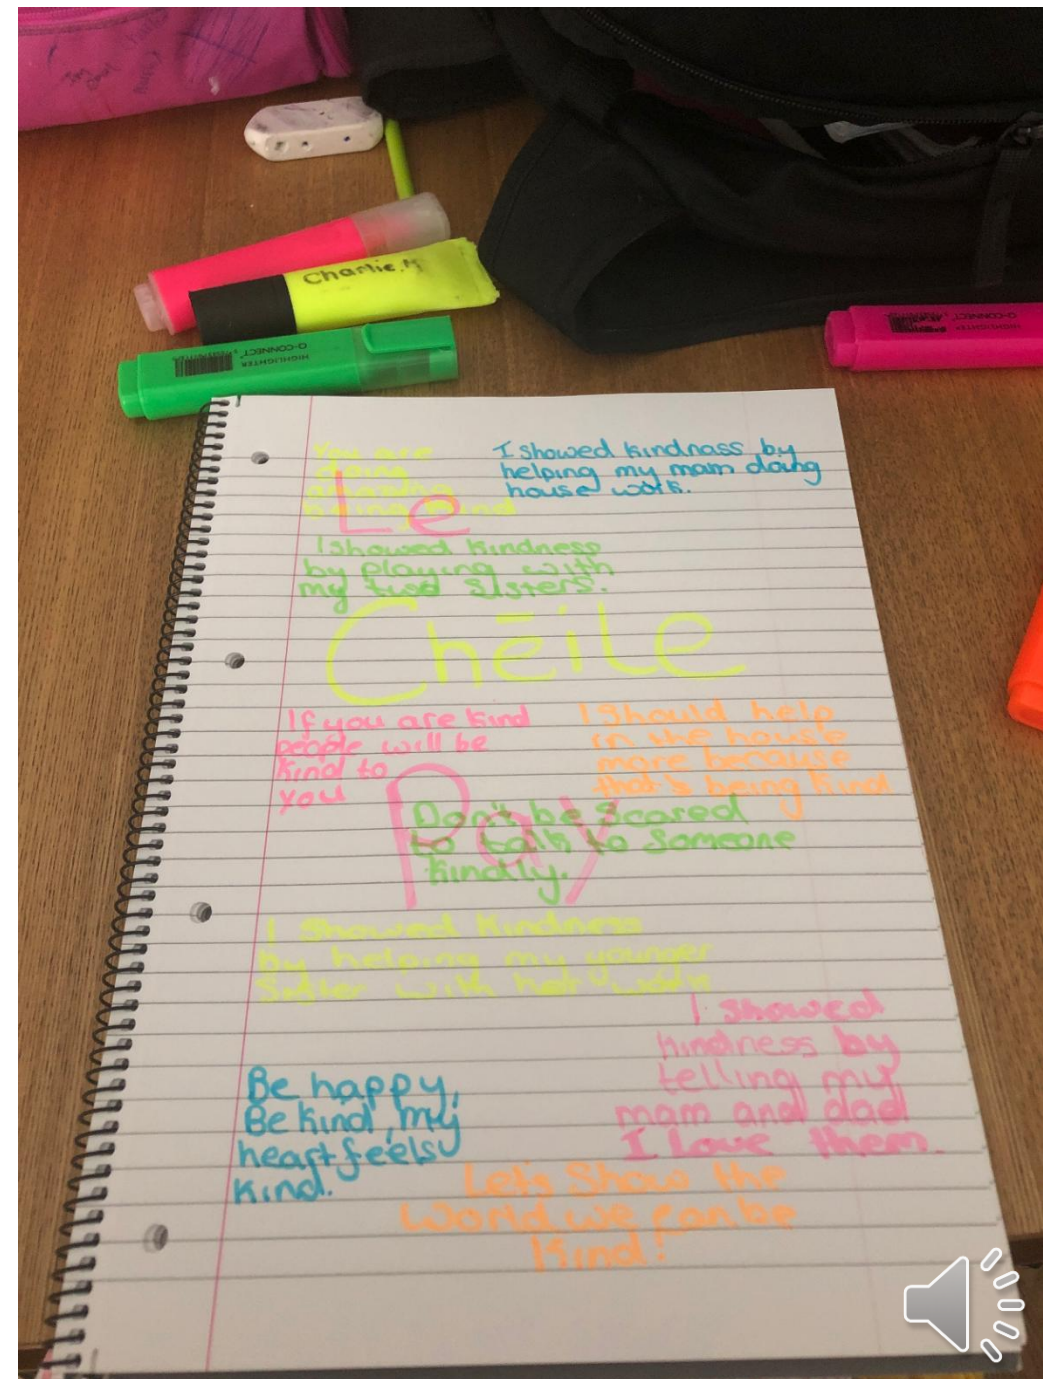 Charlie.M
HIGHLIGHTER
Q-CONNECT
HIGHLIGHTER
Q-CONNECT
You are
doing
amazing
being kind
Le
I showed kindnass by
helping my mam doing
house work.
I showed kindness
by playing with
my two sisters.
Chēile
If you are kind
people will be
kind to
you
I Should help
in the house
more because
that's being kind
Day
Don't be scared
to talk to someone
kindly.
I Showed Kindness
by helping my younger
Sister with her
I showed
kindness by
telling my
mam and dad
I Love them.
Be happy,
Be kind, my
heart feels
kind.
Let's Show the
World we can be
Kind!